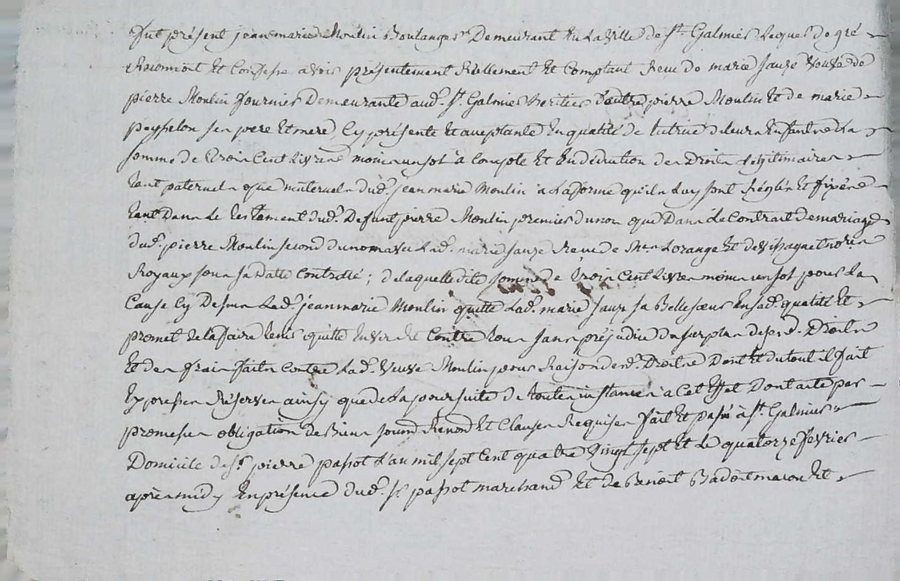 fut présent jeanmarie Moulin Boulanger Demeurant En La ville De St. Galmier Lequel de gré
Reconnoit Et Confesse avoir présentement Réellement Et Comptant Receu de marie Sauze veuve de
pierre Moulin fournier Demeurante aud. St. Galmier heritier d'autre pierre Moulin Et de marie
peysselon ses pere Et mere Cy présente Et acceptante En qualité de tutrice de leurs Enfants La
somme de trois Cent Livres moins un sol à Compte Et En déduction des Droits Légitimaires
tant paternels que maternels dud. jeanmarie Moulin à La forme qu'ils Luy sont Réglés Et fixés
tant Dans Le testament dud. Defunt pierre Moulin premier du nom que Dans Le Contrat de mariage
dud. pierre Moulin second du nom avec Lad. marie Sauze Receu de Lorange Et notaires
Royaux sous sa Datte Controllé ; de laquelle dite somme de trois Cent Livres moins un sol pour La
Cause Cy Dessus Led. jeanmarie Moulin quitte Lad. marie Sauze sa Belle soeur En sad. qualité Et
promet de la faire tenir quitte Envers Et Contre tous sans préjudice du surplus desd. Droits
Et des frais faits Contre Lad. veuve Moulin pour Raison desd. Droits Dont Et du tout il fait
Expresses Réserves ainsy que de La poursuite de toutes instances à Cet Effet Dont acte par
promesses obligation de Biens soum. Renon. Et Clauses Requises fait Et passé à St. Galmier
Domicile de sr. pierre passot L'an mil sept Cent quatre vingt sept Et Le quatorze fevrier
après midy En présence dud. sr. passot marchand Et de Benoit Badoit maçon Et